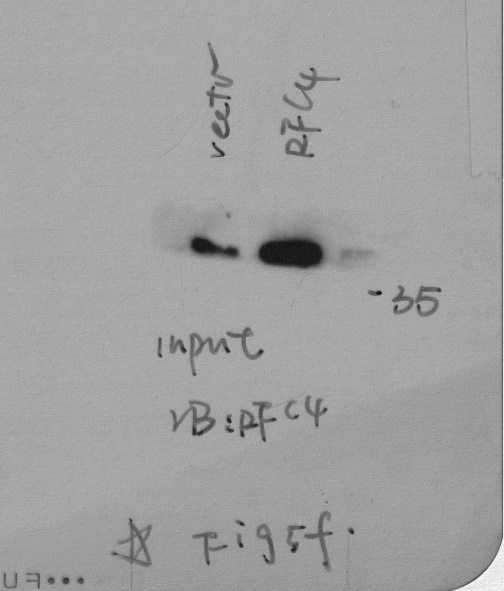 vector
RFC4
-35
input
IB: RFC4
☆ Fig 5f.